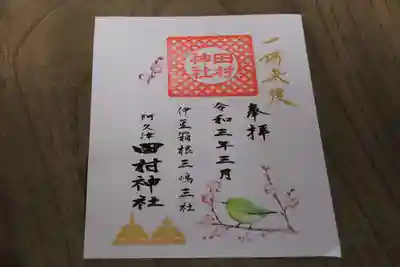 一陽来復
奉拝
令和三年三月
田村
神社
伊豆箱根三嶋三社
阿久津
田村神社